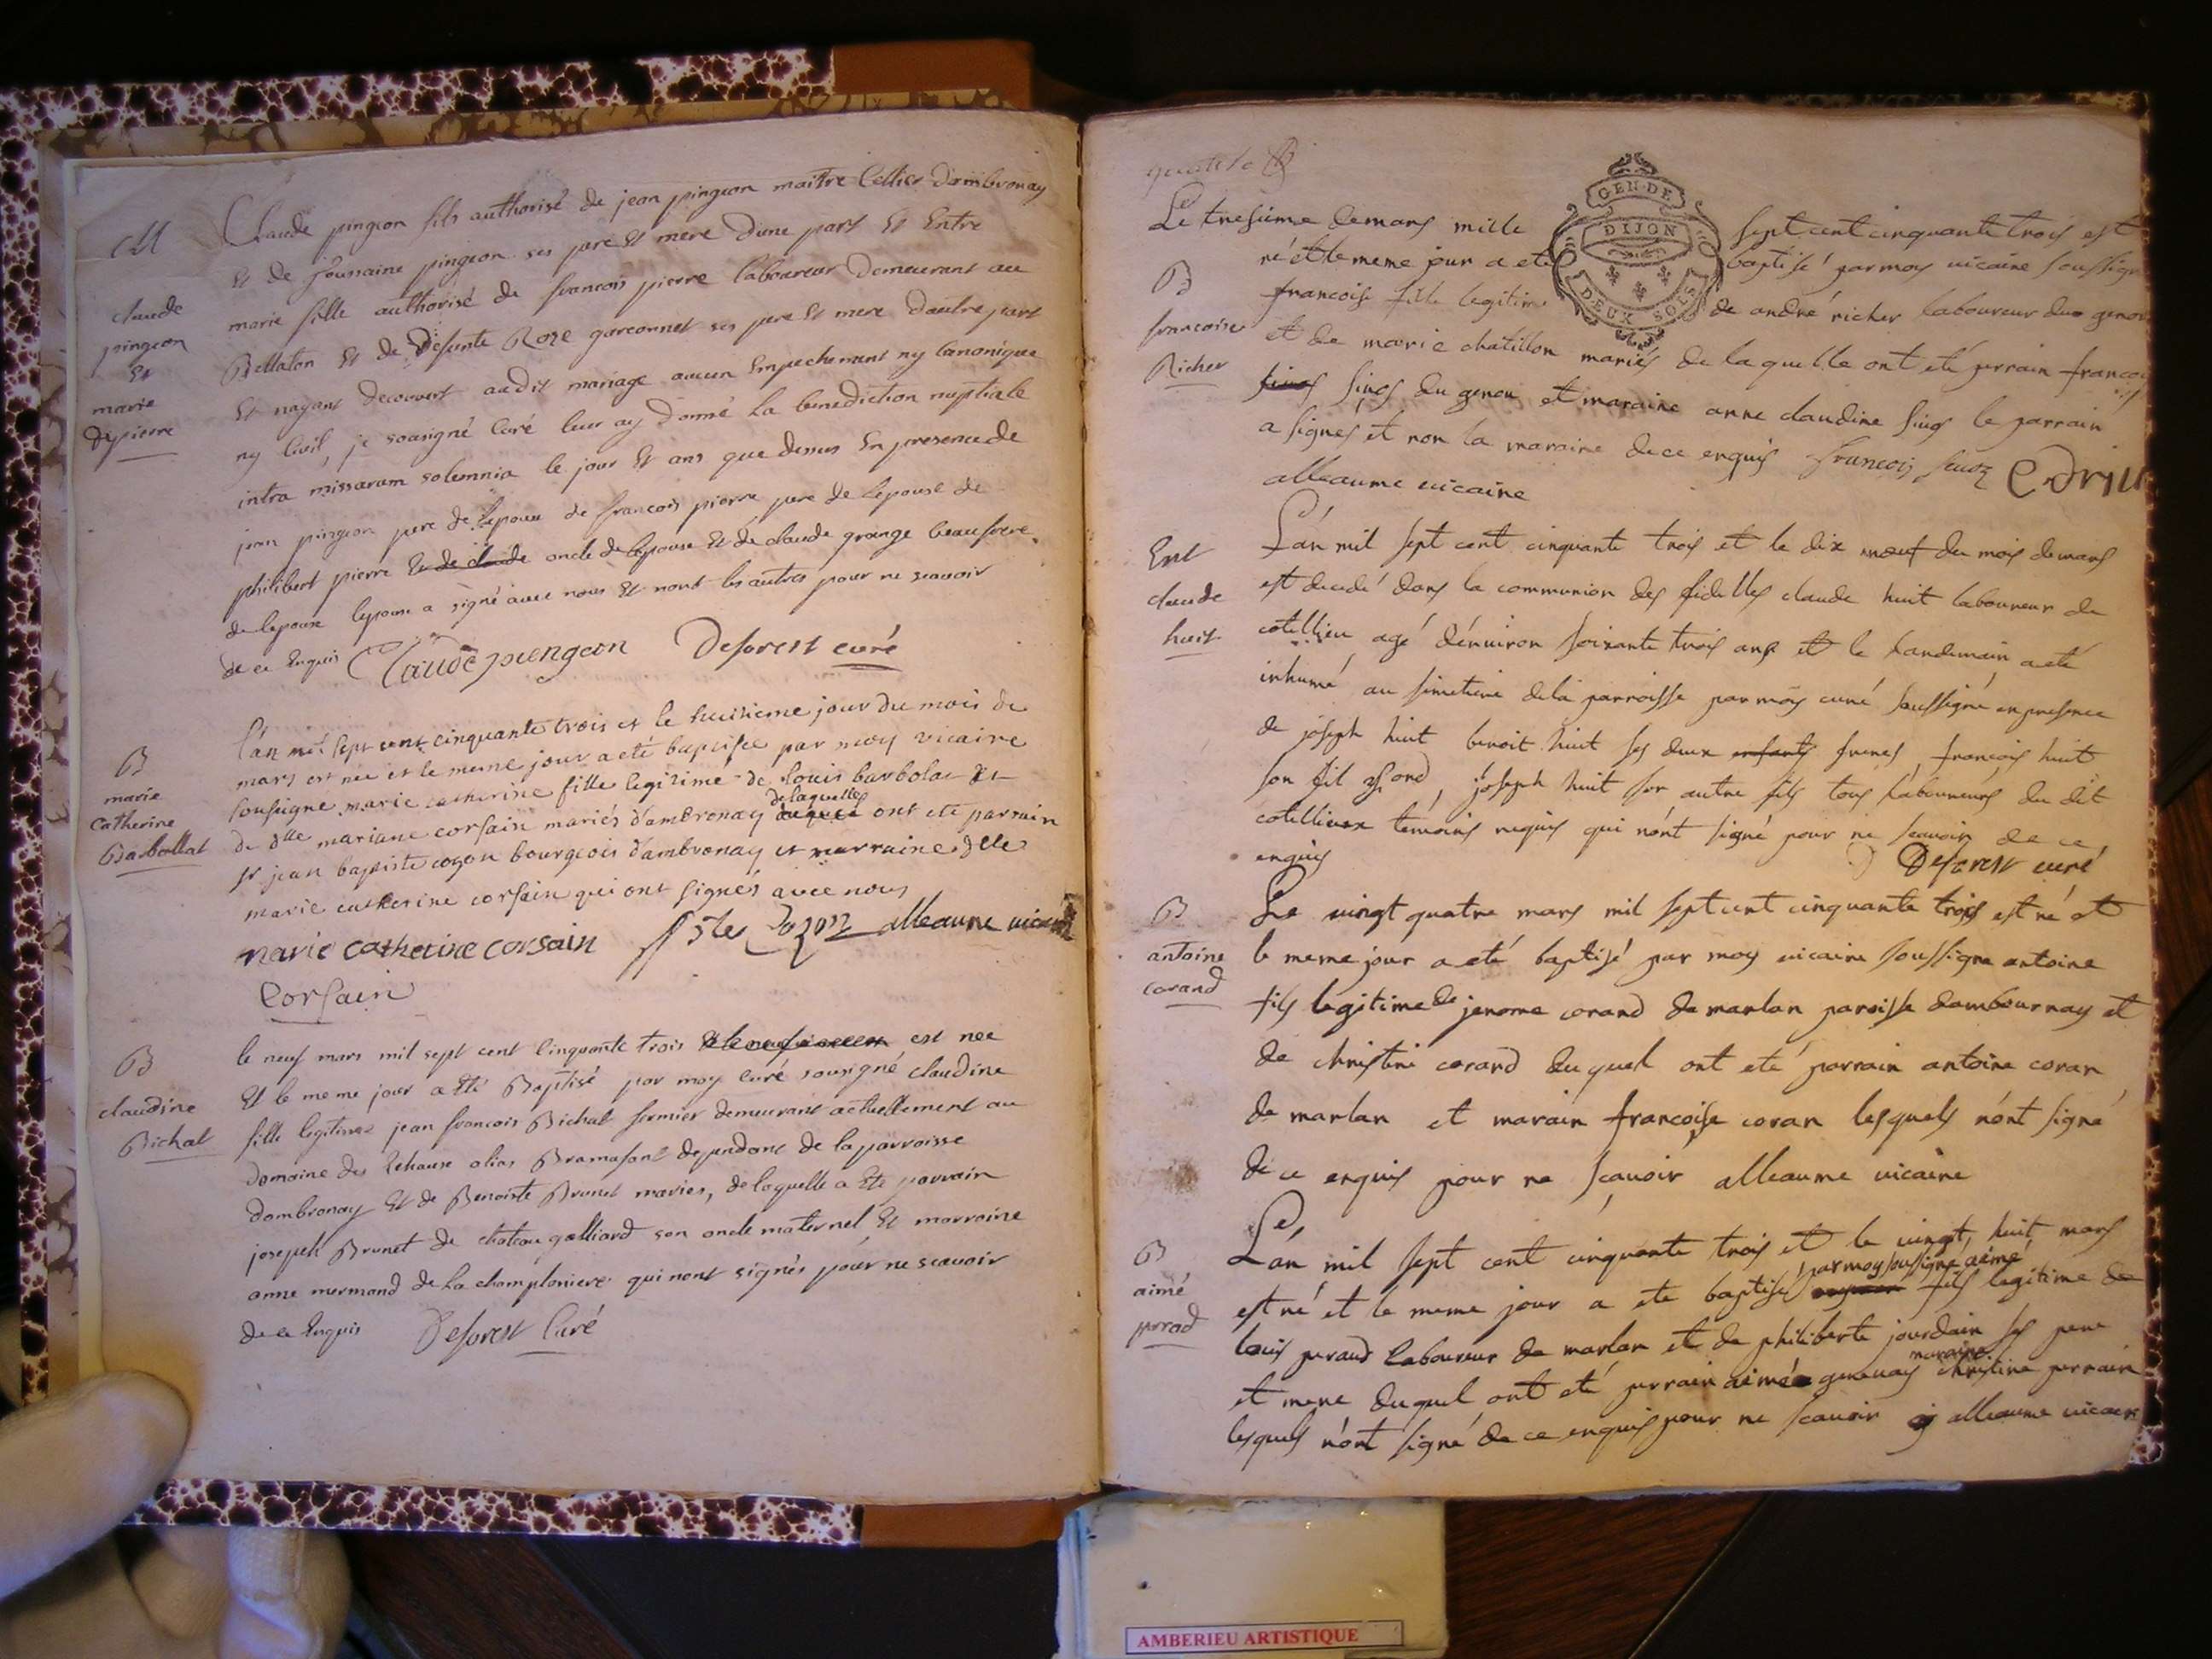 M
claude
pingeon
Et
marie
Dypierre
Claude pingeon fils authorisé de jean pingeon maitre Cellier Dambronay
Et de pingeon ses pere Et mere Dune part Et Entre
marie fille authorisé de francois pierre laboureur Demeurant au
Bellaton Et de Defunte Roze garconnet ses pere Et mere Dautre part
Et nayant decouvert audit mariage aucun Empechement ny Canonique
ny Civil, je sousigné Curé leur ay Donné La benediction nuptiale
intra missarum solemnia le jour Et ans que dessus En presence de
jean pingeon pere de lepoux de francois pierre pere de lepouse de
philibert pierre Et de claude oncle de lepouse Et de claude grange beaufrere
de lepoux lepoux a signé avec nous Et nont les autres pour ne scavoir
de ce Enquis Claude pengeon Deforest curé
B
marie
catherine
Barbollat
L'an mil sept cent cinquante trois et le huitieme jour du mois de
mars est née et le meme jour a eté baptisée par moy vicaire
sousigné marie catherine fille legitime de Louis barbolat Et
de dlle mariane corsain mariés d'ambronay delaquelle ont eté parrain
sr jean baptiste cozon bourgeois d'ambronay et marraine dlle
marie catherine corsain qui ont signés avec nous
marie catherine corsain Cozon alleaume vicaire
Corsain
B
claudine
Bichat
le neuf mars mil sept cent Cinquante trois est née
Et le meme jour a Eté Baptisé par moy Curé sousigné claudine
fille legitime jean francois Bichat fermier demeurant actuellement au
Domaine des Echaux alias Bramafant dependant de la parroisse
Dambronay Et de Benoiste Brunet maries, de laquelle a Ete parrain
joseph Brunet de chateau galliard son oncle maternel Et marraine
anne mermand de La championiere qui nont signés pour ne scavoir
de ce Enquis Deforest Curé
GEN. DE
DIJON
DEUX SOLS
B
francoise
Richer
Le tresieme de mars mille sept cent cinquante trois est
né et le meme jour a ete baptisé par moy vicaire soussigné
francoise fille legitime de andré richer laboureur du genou
et de marie chatillon mariés de la quelle ont eté parrain francois
sinof sinof du genou et maraine anne claudine sinof le parrain
a signés et non la maraine de ce enquis francois
alleaume vicaire
Ent
claude
huit
L'an mil sept cent cinquante trois et le dix neuf du mois de mars
est decedé dans la communion des fidelles claude huit laboureur de
cotellieu agé d'enviror soixante trois ans et le Landemain a eté
inhumé au simetiere de la parroisse par moy curé soussigné en presence
de joseph huit benoit huit ses deux enfants freres, francois huit
son fil second, joseph huit son autre fils tous laboureurs du dit
cotellieu temoins requis qui n'ont signé pour ne scavoir de ce
enquis Deforest curé
B
antoine
corand
Le vingt quatre mars mil sept cent cinquante trois est né et
le meme jour a eté baptisé par moy vicaire soussigne antoine
fils legitime de jerome corand de marlan paroisse dambournay et
de christine corand duquel ont eté parrain antoine coran
de marlan et marain francoise coran lesquels n'ont signé
de ce enquis pour ne scavoir alleaume vicaire
B
aimé
perrod
L'an mil sept cent cinquante trois et le vingt huit mars
est né et le meme jour a ete baptisé par moy soussigné aémé fils legitime de
louis peraud laboureur de marlan et de philiberte jourdain ses pere
et mere duquel ont eté parrain aimé genevay maraine christine perrain
lesquels n'ont signé de ce enquis pour ne scavoir alleaume vicaire
AMBERIEU ARTISTIQUE